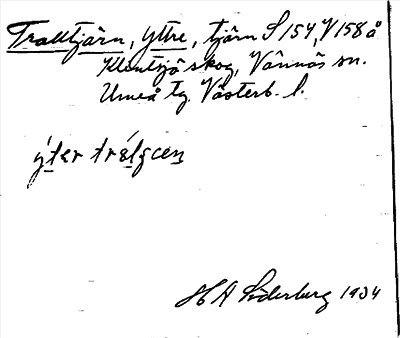 Tralltjärn, Yttre, tjärn S 154, V 158 å
Klentsjö skog, Vännäs sn.
Umeå tg. Västerb. l.
H A Söderberg 1934